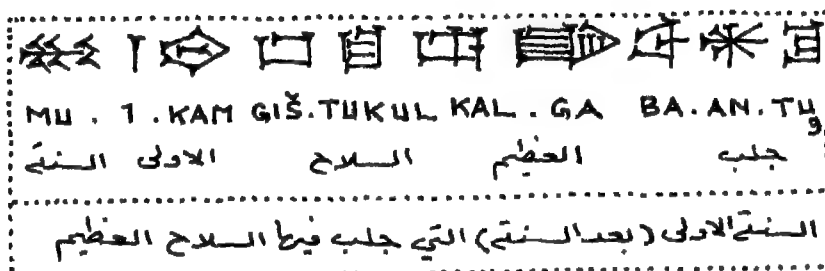 MU . 1 . KAM GIŠ.TUKUL KAL . GA BA . AN . TU₉
جلب العظيم السلاح الاولى السنة
السنة الاولى (بعد السنة) التي جلب فيها السلاح العظيم